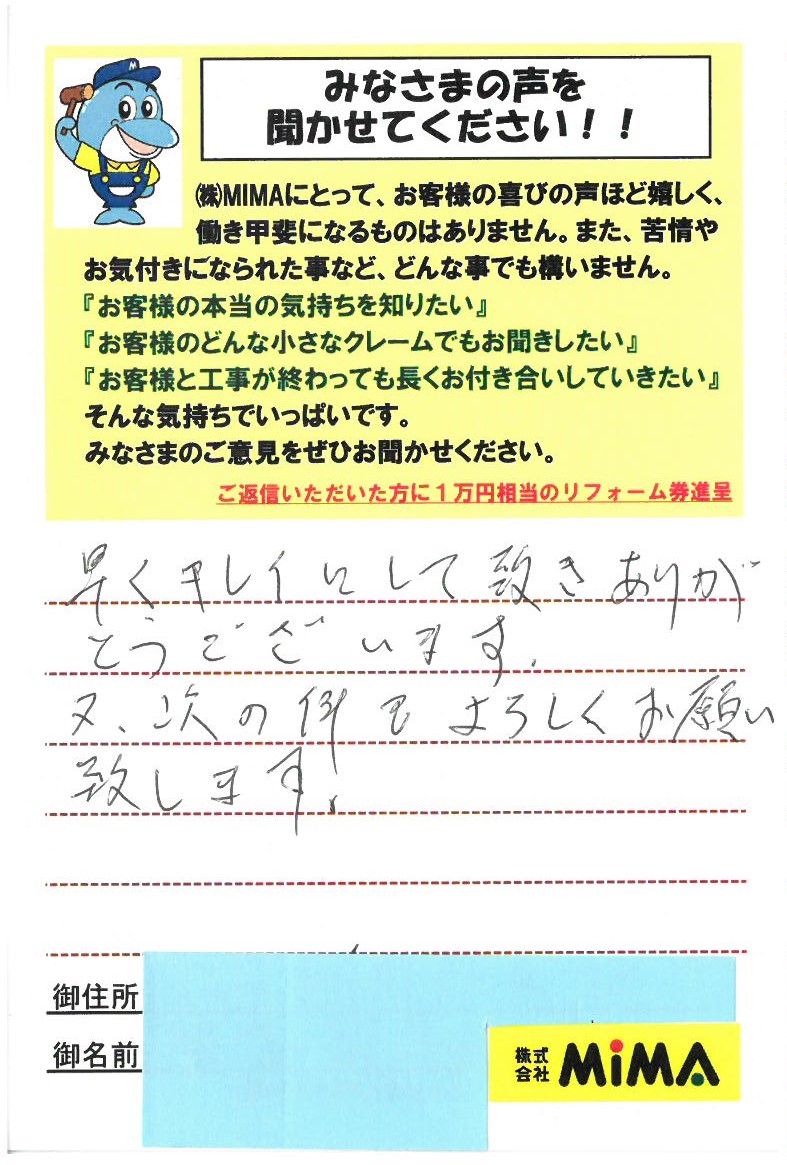 みなさまの声を
聞かせてください！！
㈱MIMAにとって、お客様の喜びの声ほど嬉しく、
働き甲斐になるものはありません。また、苦情や
お気付きになられた事など、どんな事でも構いません。
『お客様の本当の気持ちを知りたい』
『お客様のどんな小さなクレームでもお聞きしたい』
『お客様と工事が終わっても長くお付き合いしていきたい』
そんな気持ちでいっぱいです。
みなさまのご意見をぜひお聞かせください。
ご返信いただいた方に１万円相当のリフォーム券進呈
早くキレイにして致きありが
とうございます.
又、次の件もよろしくお願い
致します.
御住所
御名前
株式会社 MiMA
M